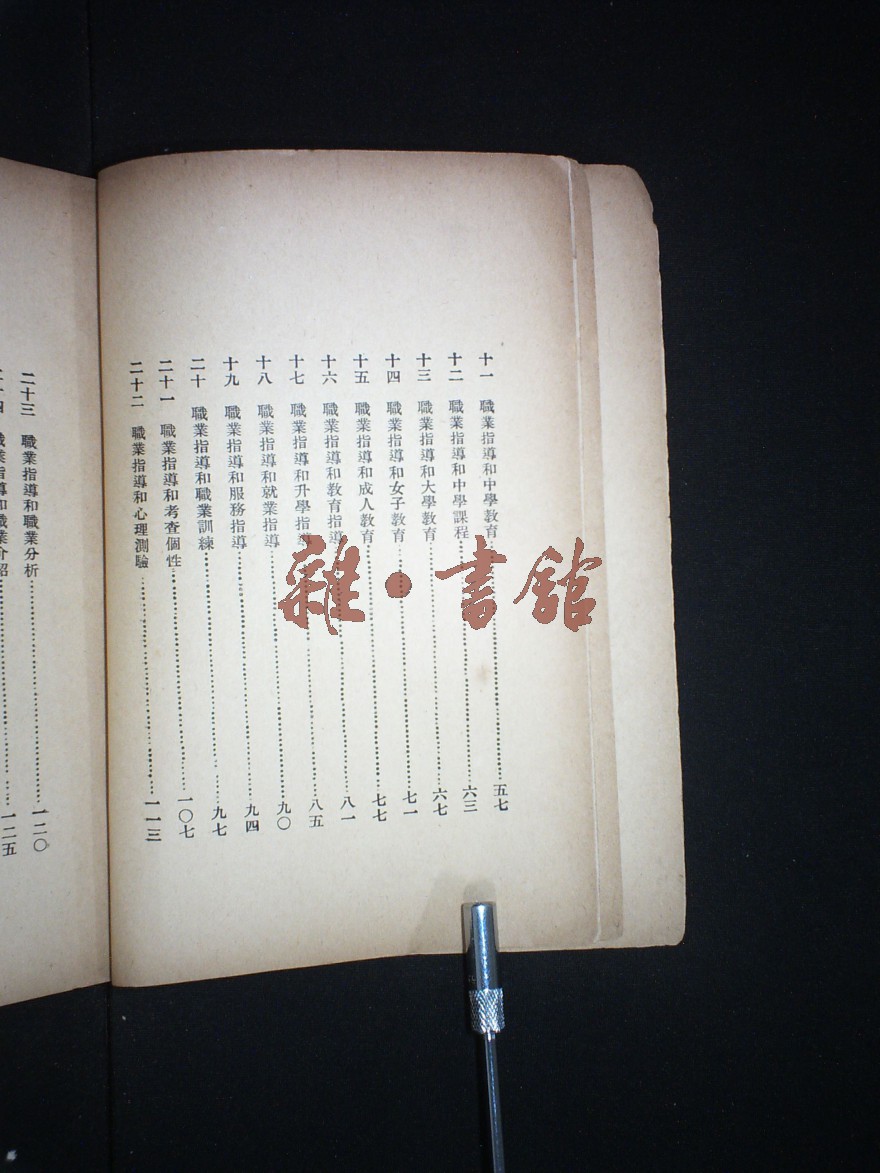 十一 職業指導和中學教育……五七
十二 職業指導和中學課程……六三
十三 職業指導和大學教育……六七
十四 職業指導和女子教育……七一
十五 職業指導和成人教育……七七
十六 職業指導和教育指導……八一
十七 職業指導和升學指導……八五
十八 職業指導和就業指導……九〇
十九 職業指導和服務指導……九四
二十 職業指導和職業訓練……九七
二十一 職業指導和考查個性……一〇七
二十二 職業指導和心理測驗……一一三
二十三 職業指導和職業分析……一二〇
二十四 職業指導和職業介紹……一二五
雜·書館